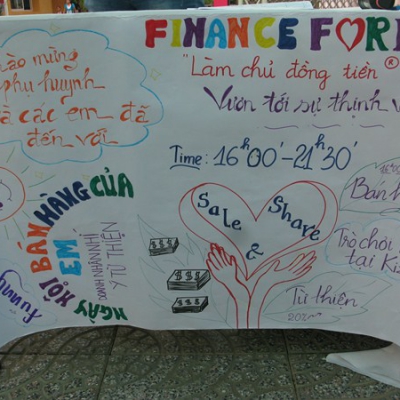 FINANCE FOR
"Làm chủ đồng tiền ®
Vươn tới sự thịnh v
Chào mừng
phụ huynh
và các em đã
đến với
Time: 16h00'-21h30'
Sale
&
Share
NGÀY HỘI BÁN HÀNG CỦA
EM
DOANH NHÂN NHÍ
Ý TỪ THIỆN
Funny
$$$
$$$
$$$
Bán h
Trò chơi
tại Ki
Từ thiện
20%